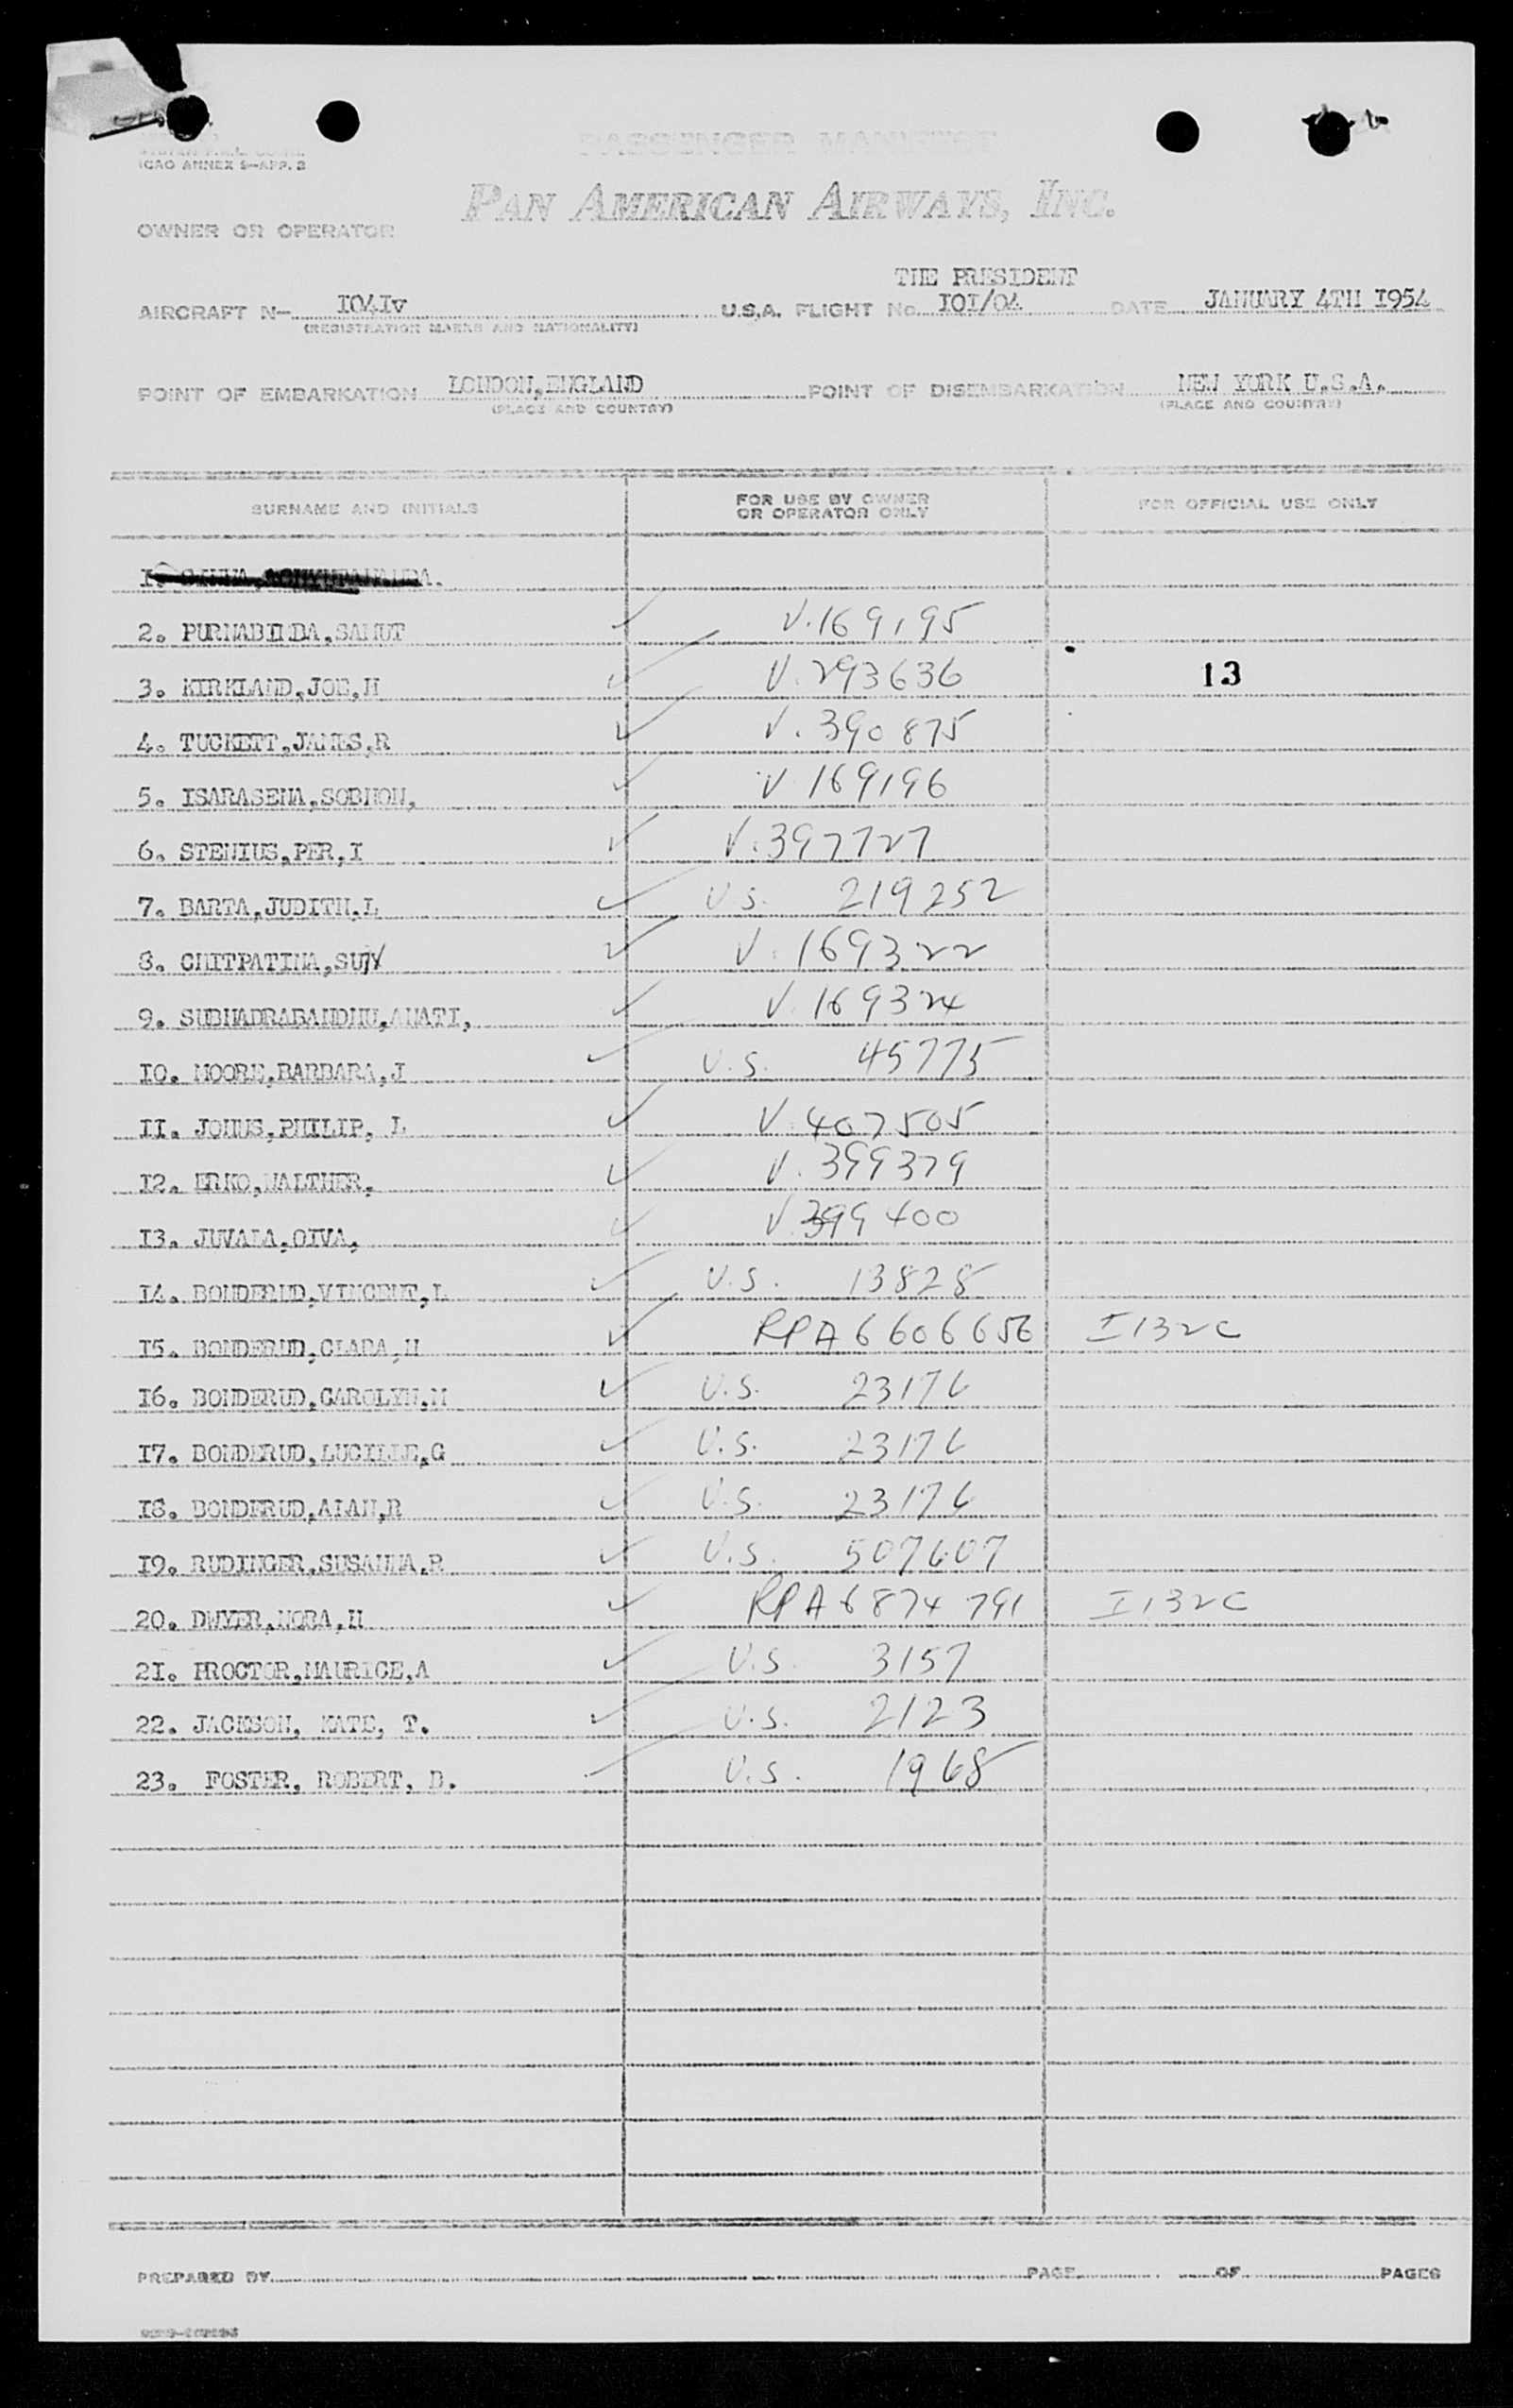 PASSENGER MANIFEST
ICAO ANNEX 9—APP. 2
PAN AMERICAN AIRWAYS, INC.
OWNER OR OPERATOR
THE PRESIDENT
AIRCRAFT N— I04Iv U.S.A. FLIGHT No. I0I/04 DATE JANUARY 4TH I954
(REGISTRATION MARKS AND NATIONALITY)
POINT OF EMBARKATION LONDON,ENGLAND POINT OF DISEMBARKATION NEW YORK U.S.A.
(PLACE AND COUNTRY) (PLACE AND COUNTRY)
SURNAME AND INITIALS FOR USE BY OWNER OR OPERATOR ONLY FOR OFFICIAL USE ONLY
2. PURNABINDA,SAMUT ✓ V.169195
3. KIRKLAND,JOE,H ✓ V.293636 13
4. TUCKETT,JAMES,R ✓ V.390875
5. ISARASENA,SOBHON, ✓ V 169196
6. STENIUS,PER,I ✓ V.397727
7. BARTA,JUDITH,L ✓ U.S. 219252
8. CHITPATIMA, ✓ V.169322
9. SUBHADRABANDHU,ANATI, ✓ V.169324
I0. MOORE,BARBARA,J ✓ U.S. 45775
II. JOHNS,PHILIP, L ✓ V.407505
I2. ERKO,WALTHER, ✓ V.399379
I3. JUVALA,OIVA, ✓ V.399400
I4. BONDERUD,VINCENT,L ✓ U.S. 13828
I5. BONDERUD,CLARA,H ✓ RPA6606656 I132C
I6. BONDERUD,CAROLYN,M ✓ U.S. 23176
I7. BONDERUD,LUCILLE,G ✓ U.S. 23176
I8. BONDERUD,ALAN,R ✓ U.S. 23176
I9. RUDINGER,SUSANNA,R ✓ U.S. 507607
20. DWYER,NORA,H ✓ RPA6874791 I132C
2I. PROCTOR,MAURICE,A ✓ U.S. 3157
22. JACKSON, KATE, T. ✓ U.S. 2123
23. FOSTER, ROBERT, B. ✓ U.S. 1968
PREPARED BY PAGE OF PAGES